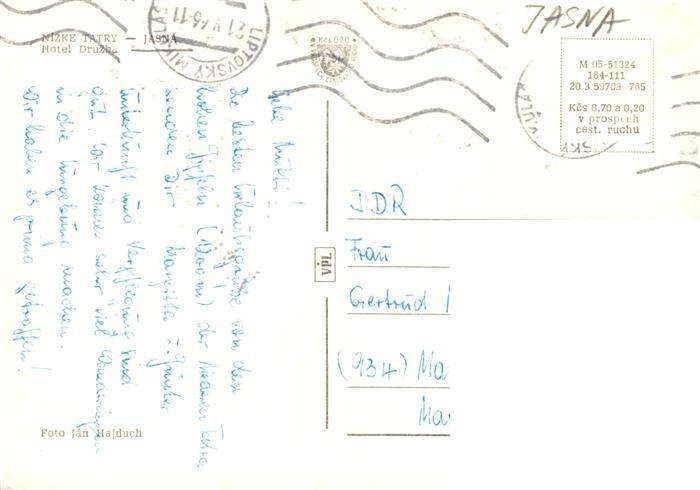 JASNA
NÍZKE TATRY — JASNÁ
Hotel Družba
LIPTOVSKÝ MIKULÁŠ
Kčs 0,20
M 05-51324
184-111
20 3 59703 765
Kčs 0,70 a 0,20
v prospech
cest. ruchu
Liebe Mutti!
Die besten Urlaubsgrüße von den
hohen Gipfeln (1200m) der Niederen Tatra
senden Dir Margitta u. Günter
Unterkunft und Verpflegung sind
gut. Wir können sehr viel Wanderungen
in die Umgebung machen.
Wir haben es prima getroffen!
VPL
DDR
Frau
Gertrud
(934) Ma
Ma
Foto Ján Hajduch